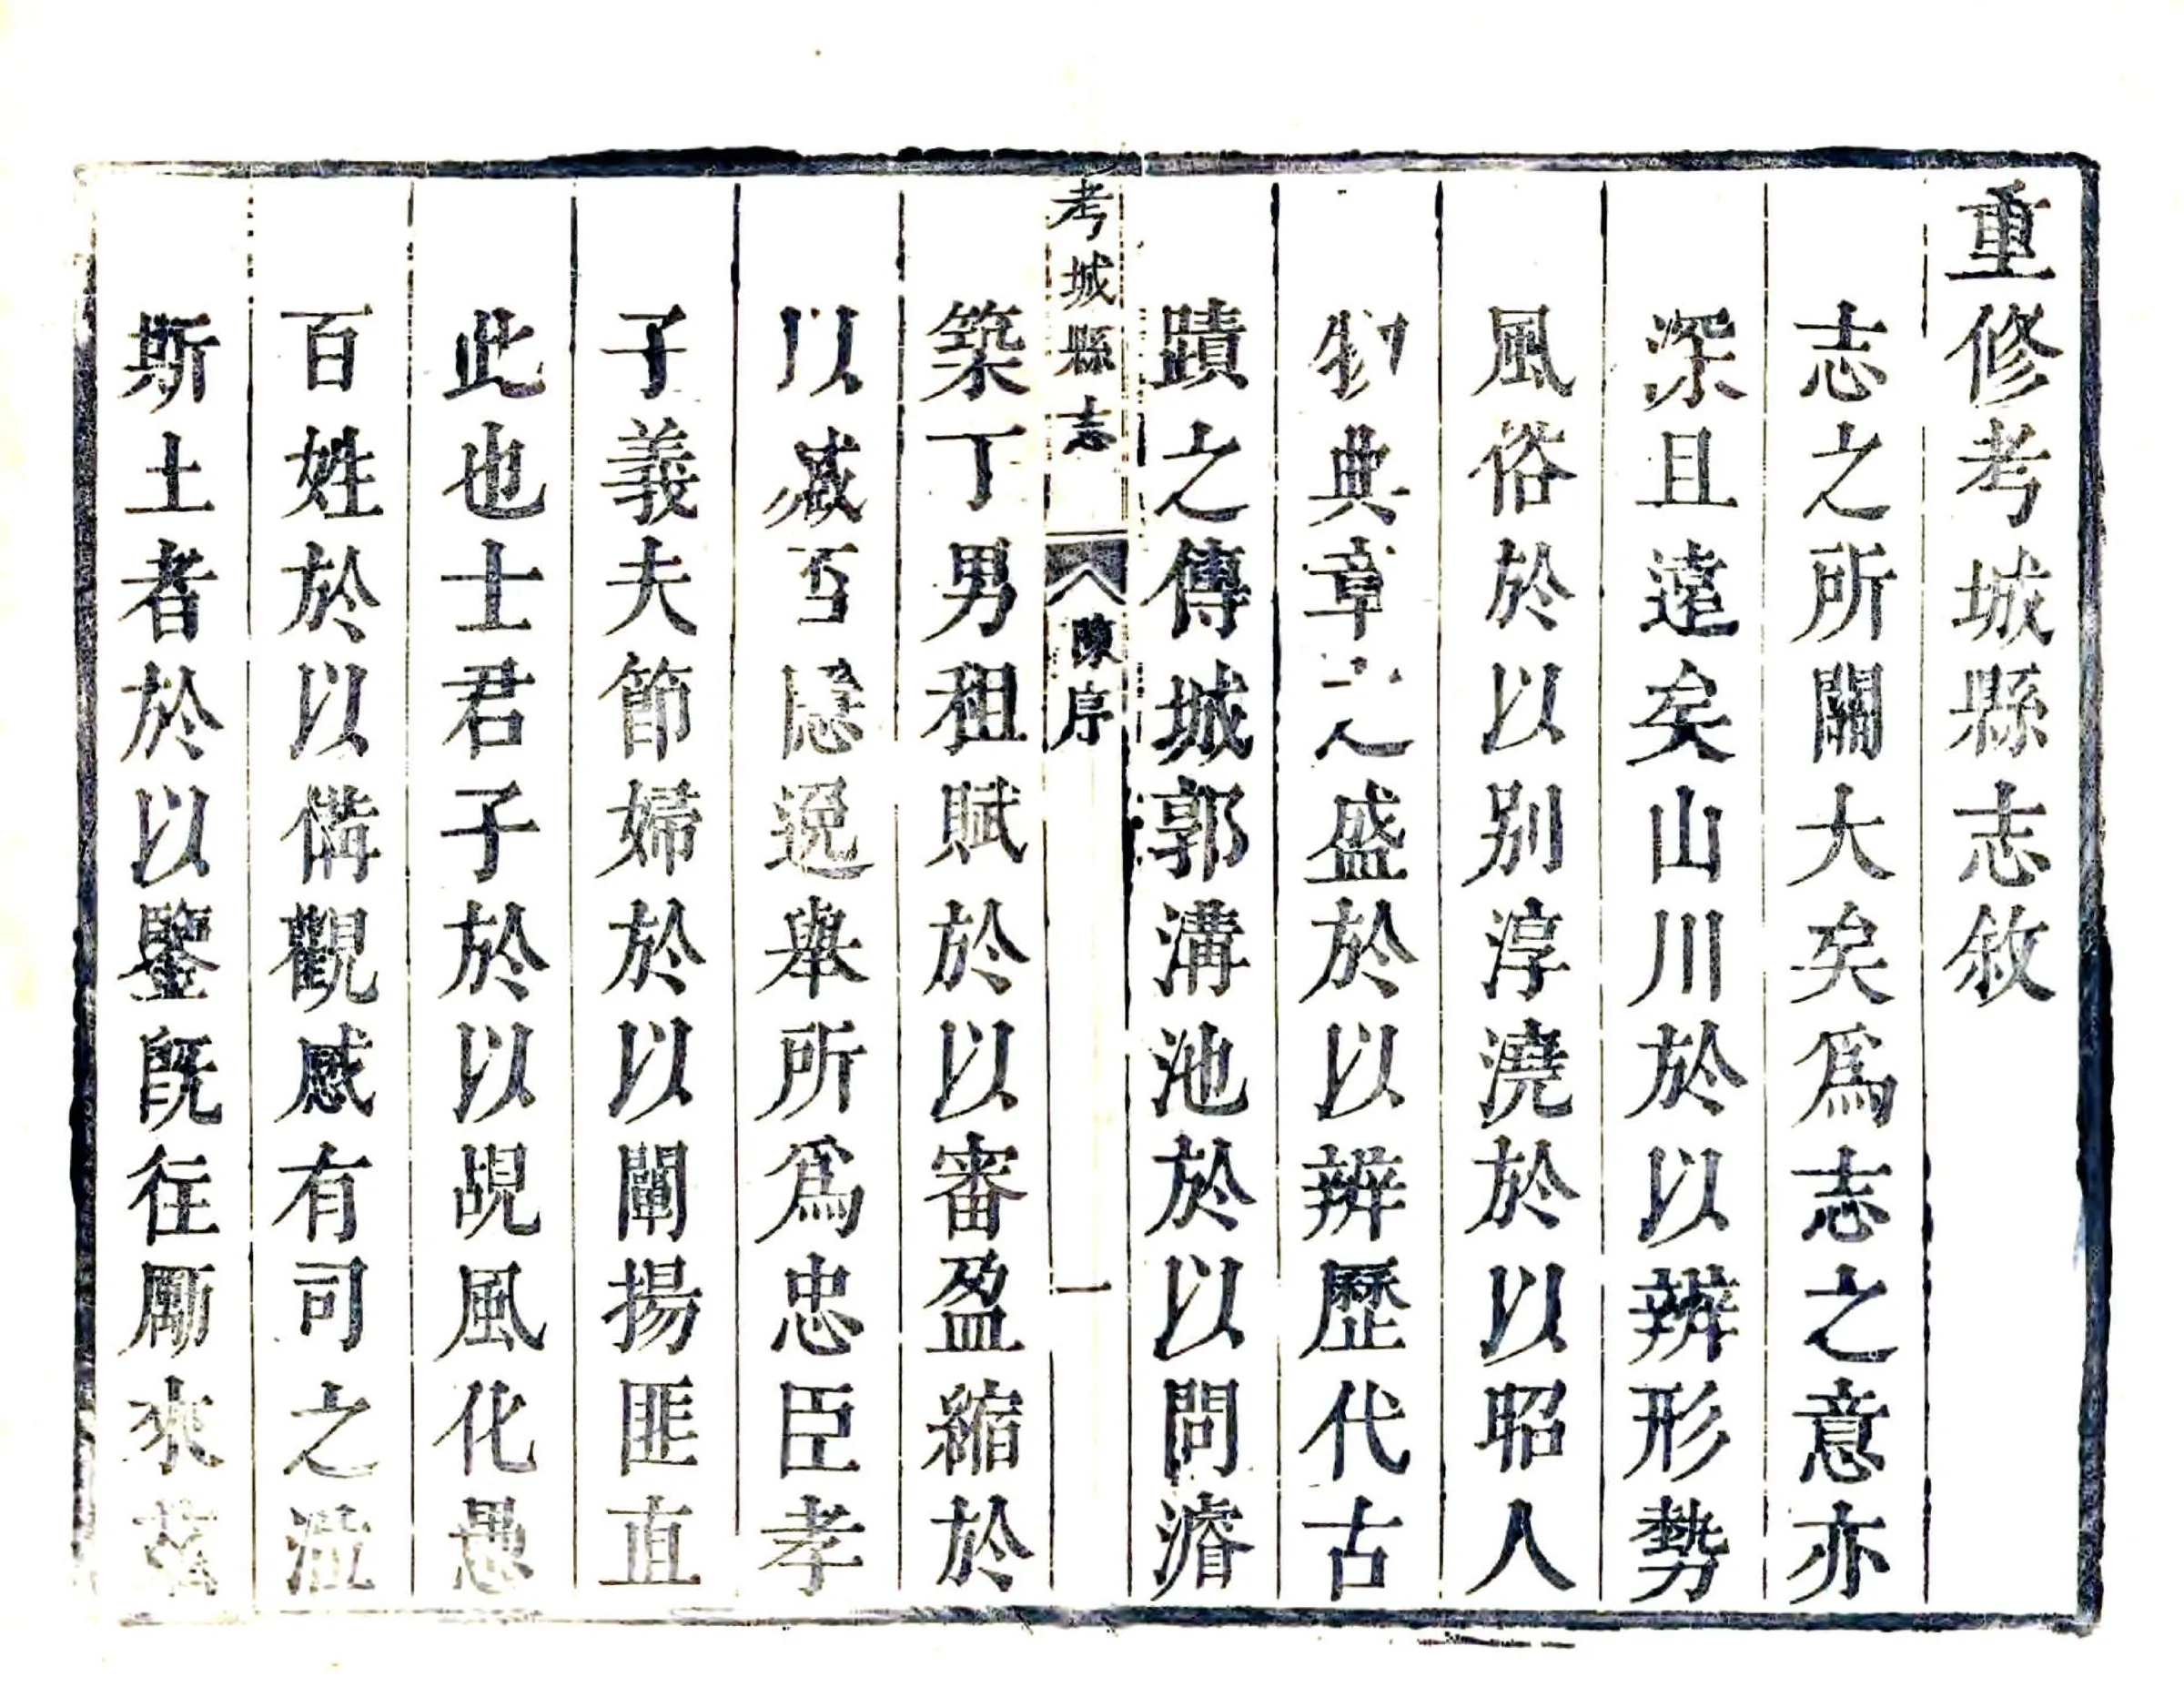 重修考城縣志敘
志之所關大矣爲志之意亦
深且遠矣山川於以辨形勢
風俗於以别淳澆於以昭人
物典章之盛於以辨歷代古
蹟之傳城郭溝池於以問濬
考城縣志 陳序 一
築丁男租賦於以審盈縮於
以臧否隱逸舉所爲忠臣孝
子義夫節婦於以闡揚匪直
此也士君子於以覘風化愚
百姓於以備觀感有司之涖
斯土者於以鑒既徃勵來